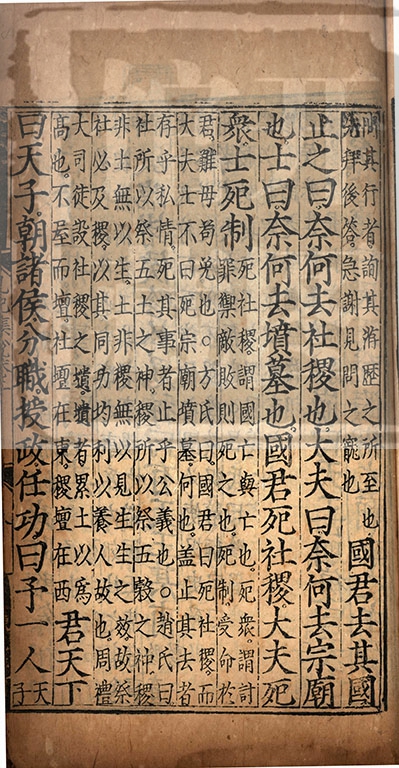 問其行者詢其游歷之所至也
先拜後答急謝見問之寵也
國君去其國
止之曰奈何去社稷也大夫曰奈何去宗廟
也士曰奈何去墳墓也國君死社稷大夫死
衆士死制
死社稷謂國亡與亡也死衆謂討
罪禦敵敗則死之也死制受命於
君難毋苟免也○方氏曰國君曰死社稷而
大夫士不曰死宗廟墳墓何也蓋止其去者
存乎私情死其事者止乎公義也○趙氏曰
社所以祭五土之神稷所以祭五穀之神稷
非土無以生土非稷無以見生生之效故祭
社必及稷以其同功均利以養人故也周禮
大司徒設社稷之壝壝者累土以爲
高也不屋而壇社壇在東稷壇在西
君天下
曰天子朝諸侯分職授政任功曰予一人
天
子